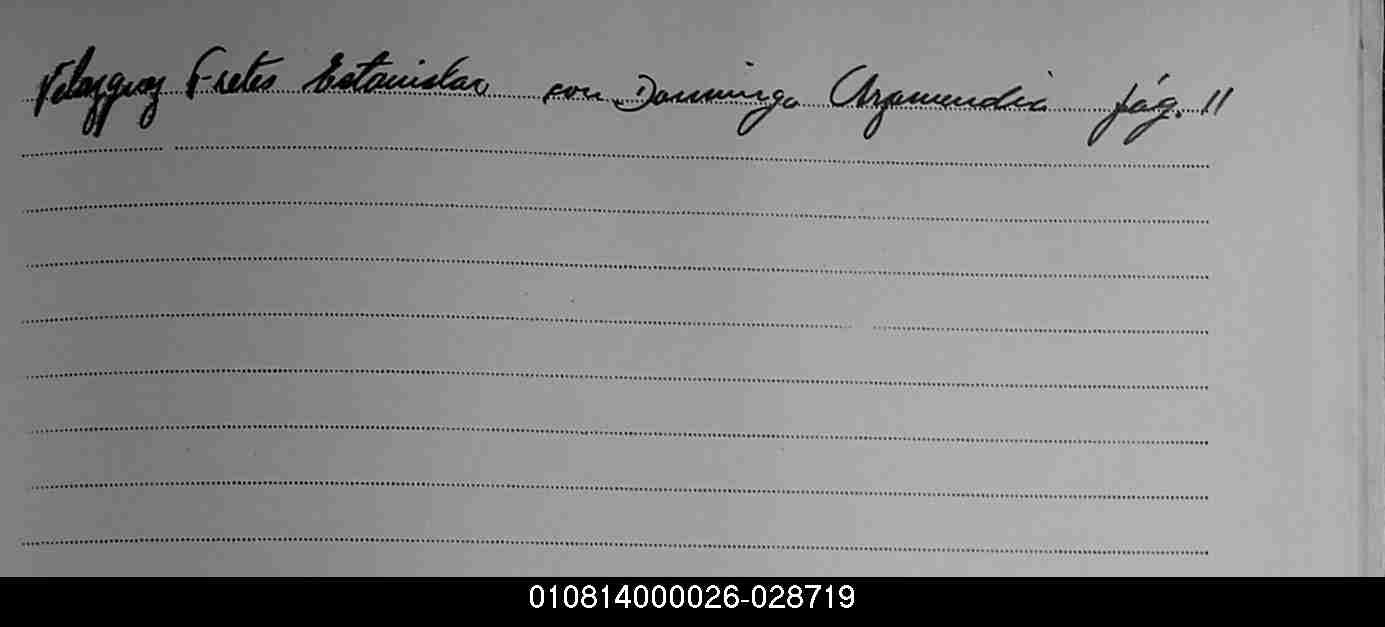 Velazquez Fretes Estanislao con Dominga Arzamendia pág. 11
010814000026-028719